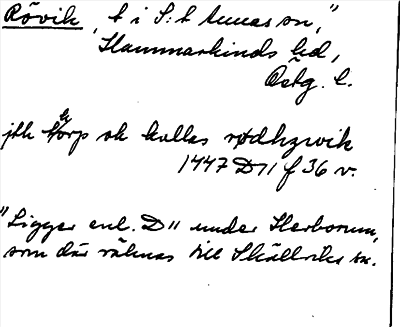 Rövik, t i S:t Annas sn,"
Hammarkinds hd,
Östg. l.
jth thorp ok kallas rødhzwik
1447 D11 f 36 v.
"Ligger enl. D11 under Herborum,
som där räknas till Skällviks sn.